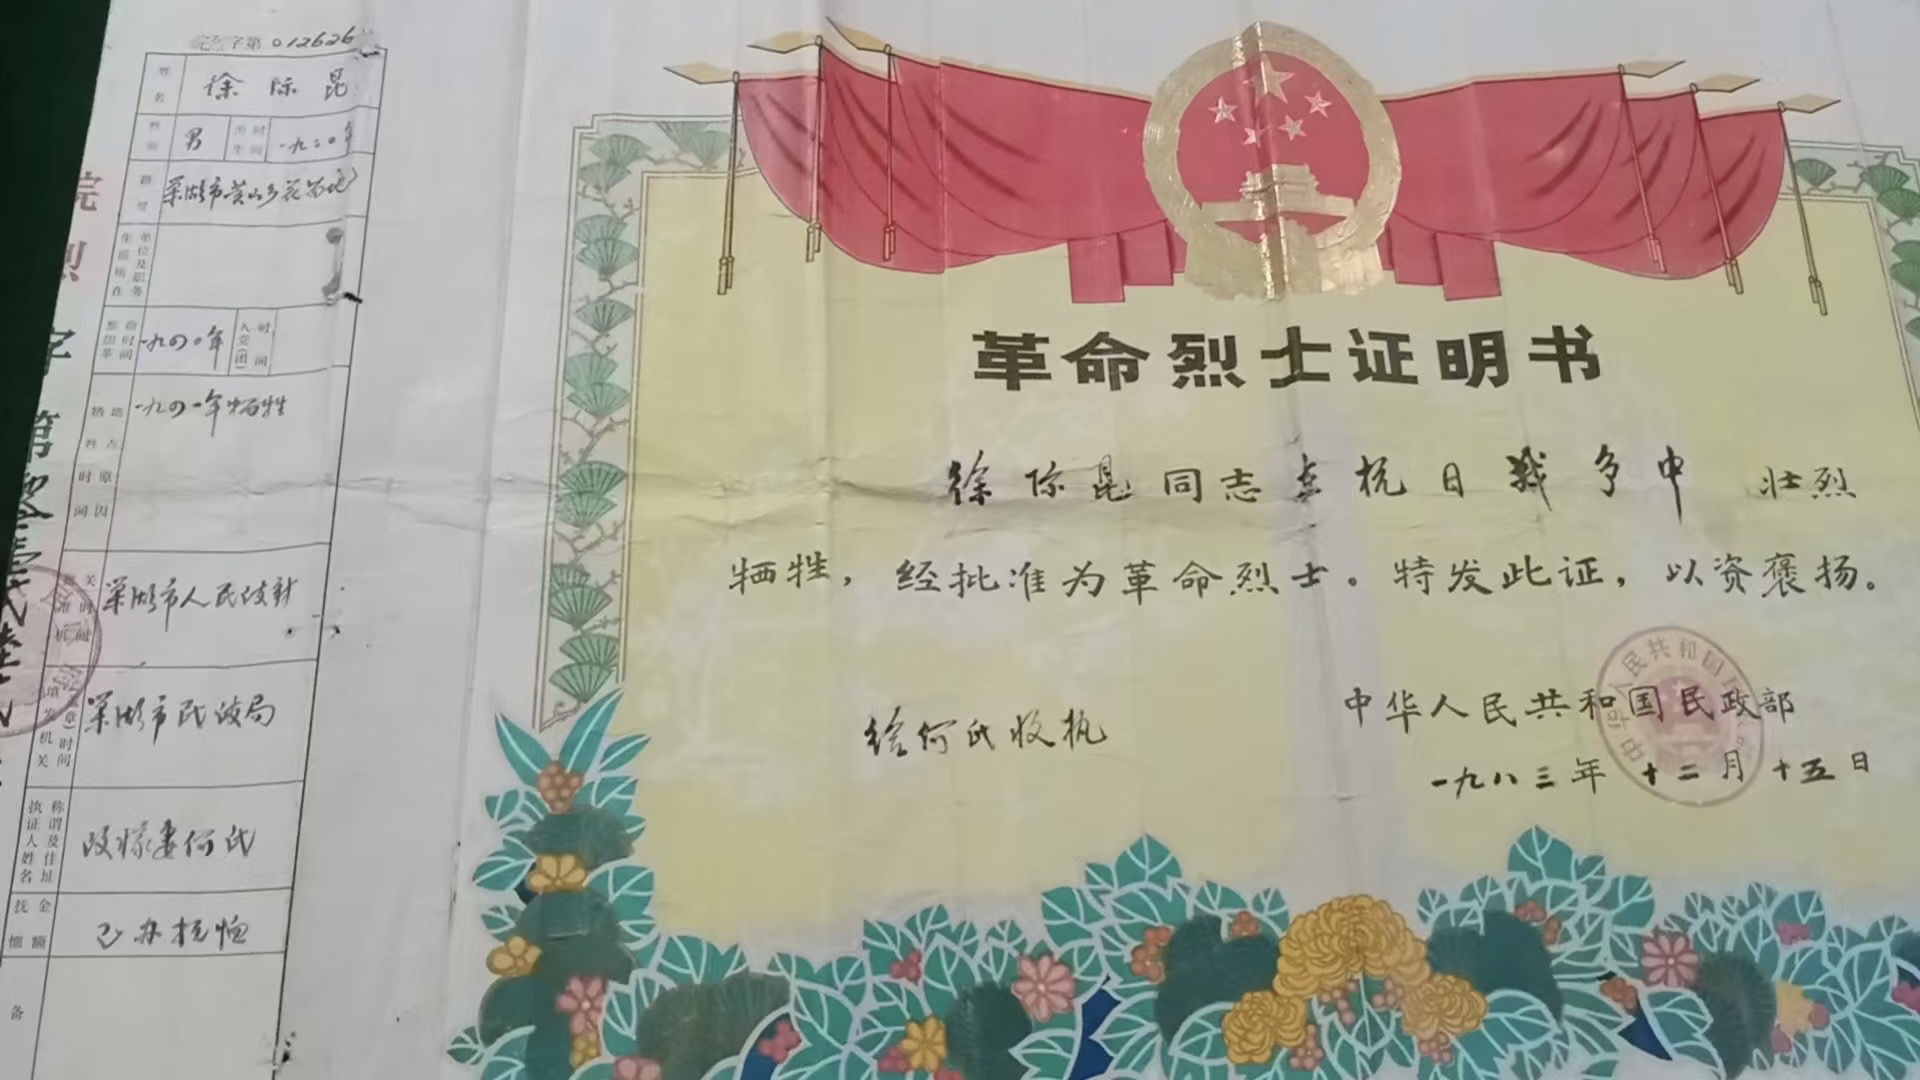 字第012626
姓名 徐际昆
性别 男 出生时间 一九二〇年
籍贯 巢湖市黄山乡花
生前所在单位及职务
参加革命时间 一九四〇年 入党(团)时间
牺牲时间地点原因 一九四一年牺牲
批准机关时间 巢湖市人民政府
填发机关(章)时间 巢湖市民政局
执证人姓名称谓及住址 何氏
抚恤金额 已办抚恤
备
院
烈
字
第
革命烈士证明书
徐际昆同志在抗日战争中 壮烈
牺牲，经批准为革命烈士。特发此证，以资褒扬。
给何氏收执
中华人民共和国民政部
一九八三年十二月十五日
中华人民共和国民